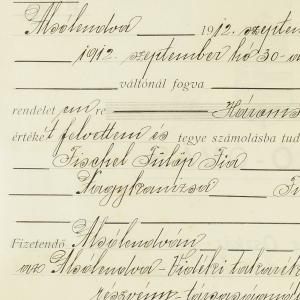 Alsólendva 1912. szeptem
1912. szeptember hó 30-a
váltónál fogva
rendelet em re Három
értékét felvettem és tegye számolásba tud
Fischel Fülöp Fia
Nagykanizsa
Fizetendő Alsólendván
az Alsólendva-Vidéki takarék
részvény-társaságnál